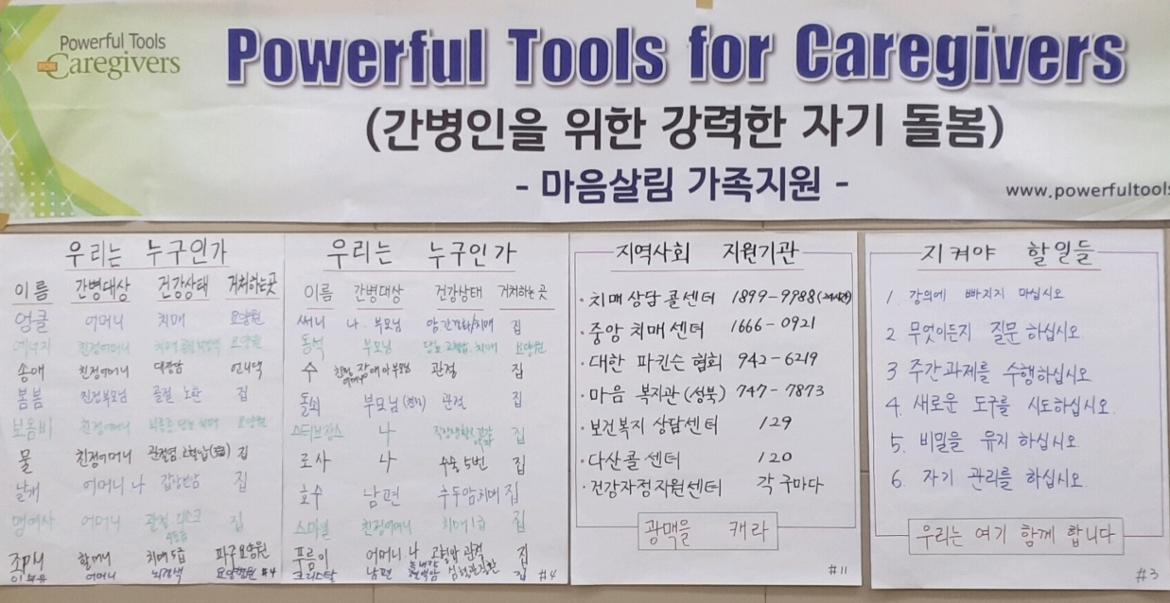 Powerful Tools
FOR
Caregivers
Powerful Tools for Caregivers
(간병인을 위한 강력한 자기 돌봄)
- 마음살림 가족지원 -
www.powerfultools
우리는 누구인가
이름 간병대상 건강상태 거처하는곳
엉클 어머니 치매 요양원
에너지 친정어머니 요양원
송애 친정어머니 대장암
봄봄 친정부모님 골절 노환 집
보름비 친정어머니 뇌졸중 당뇨 치매 요양원
물 친정어머니 관절염 고혈압 집
날개 어머니 나 집
어머니 관절 디스크 집
할머니 치매 5급 요양원
어머니 뇌경색 요양병원 #4
우리는 누구인가
이름 간병대상 건강상태 거처하는곳
써니 나. 부모님 치매 집
동석 부모님 당뇨 고혈압. 치매 요양원
수 관절 집
돌쇠 부모님 관절 집
스티브잡스 나 집
로사 나 수술 5번 집
호수 남편 치매 집
스마일 친정어머니 치매 1급 집
푸름이 어머니 나 고혈압 관절 집
크리스탈 남편 집 #4
지역사회 지원기관
· 치매 상담 콜센터 1899-9988 (24시간)
· 중앙 치매센터 1666-0921
· 대한 파킨슨 협회 942-6219
· 마음 복지관 (성북) 747-7873
· 보건복지 상담센터 129
· 다산콜 센터 120
· 건강가정지원센터 각 구마다
광맥을 캐라
#11
지켜야 할일들
1. 강의에 빠지지 마십시오
2 무엇이든지 질문 하십시오
3 주간과제를 수행하십시오
4. 새로운 도구를 시도하십시오.
5. 비밀을 유지 하십시오
6. 자기 관리를 하십시오.
우리는 여기 함께 합니다
#3